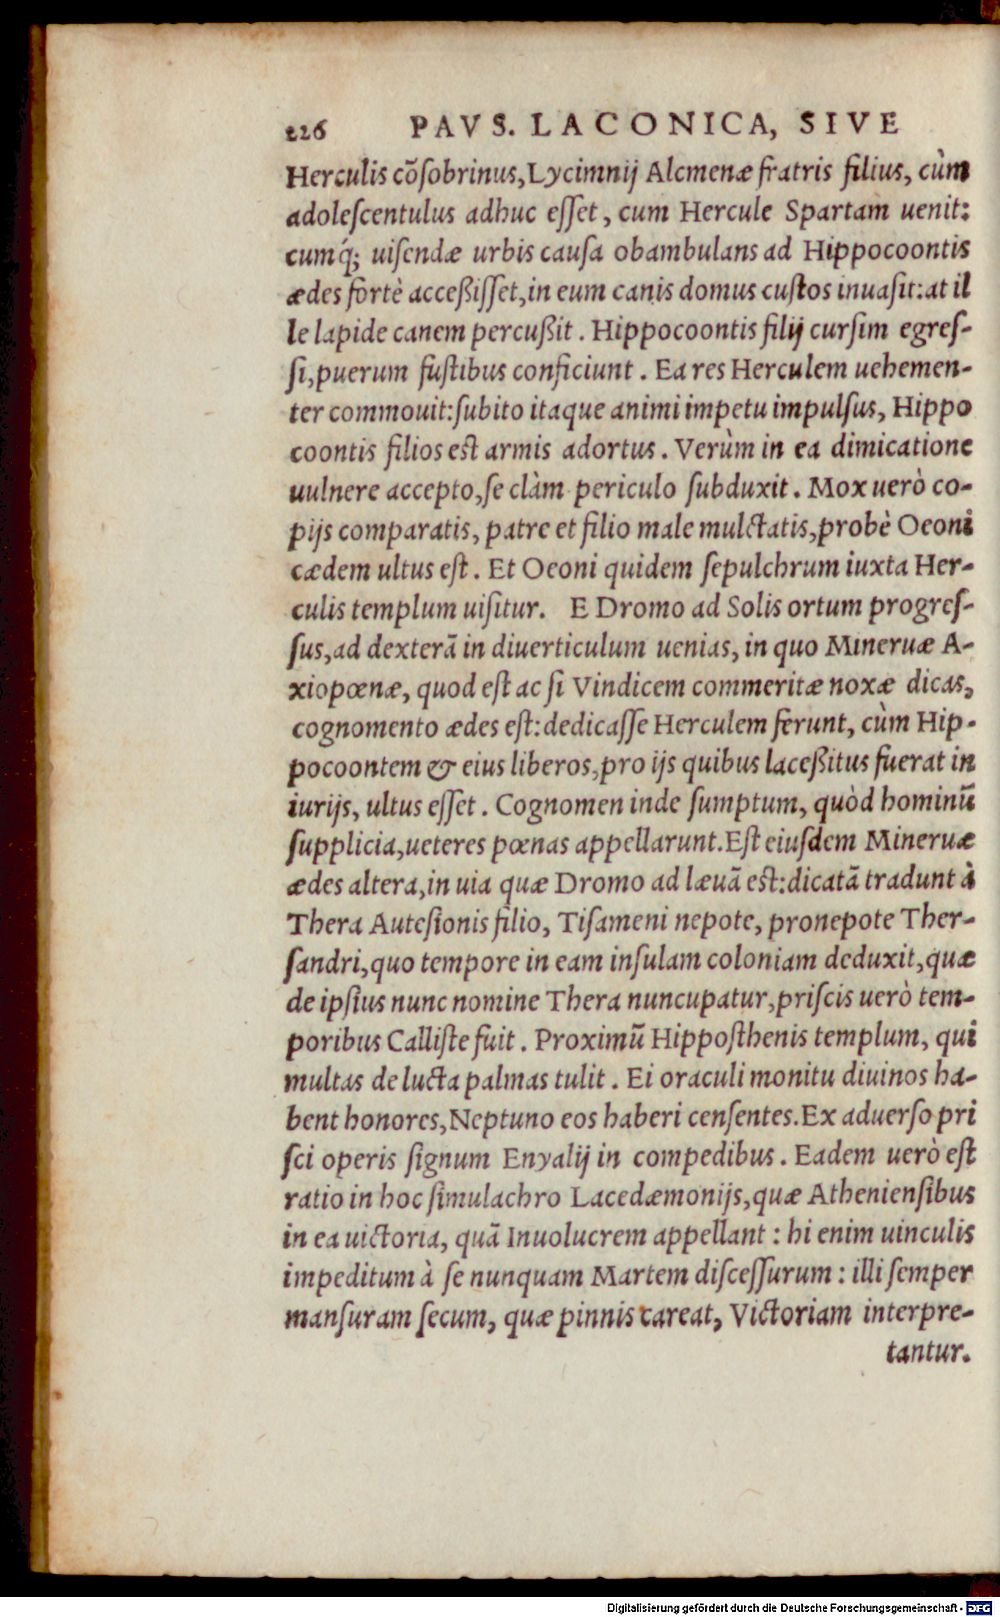 226 PAVS. LACONICA, SIVE
Herculis cõſobrinus, Lycimnij Alcmenæ fratris filius, cùm
adoleſcentulus adhuc eſſet, cum Hercule Spartam uenit:
cumq́; uiſendæ urbis cauſa obambulans ad Hippocoontis
ædes fortè acceßiſſet, in eum canis domus cuſtos inuaſit: at il
le lapide canem percußit. Hippocoontis filij curſim egreſ-
ſi, puerum fuſtibus conficiunt. Ea res Herculem uehemen-
ter commouit: ſubito itaque animi impetu impulſus, Hippo
coontis filios est armis adortus. Verùm in ea dimicatione
uulnere accepto, ſe clàm periculo ſubduxit. Mox uerò co-
pijs comparatis, patre et filio male mulctatis, probè Oeoni
cædem ultus eſt. Et Oeoni quidem ſepulchrum iuxta Her-
culis templum uiſitur. E Dromo ad Solis ortum progreſ-
ſus, ad dexterã in diuerticulum uenias, in quo Mineruæ A-
xiopœnæ, quod eſt ac ſi Vindicem commeritæ noxæ dicas,
cognomento ædes eſt: dedicaſſe Herculem ferunt, cùm Hip-
pocoontem & eius liberos, pro ijs quibus laceßitus fuerat in
iurijs, ultus eſſet. Cognomen inde ſumptum, quòd hominũ
ſupplicia, ueteres pœnas appellarunt. Eſt eiuſdem Mineruæ
ædes altera, in uia quæ Dromo ad læuã est: dicatã tradunt à
Thera Auteſionis filio, Tiſameni nepote, pronepote Ther-
ſandri, quo tempore in eam inſulam coloniam deduxit, quæ
de ipſius nunc nomine Thera nuncupatur, priſcis uerò tem-
poribus Calliſte fuit. Proximũ Hippoſthenis templum, qui
multas de lucta palmas tulit. Ei oraculi monitu diuinos ha-
bent honores, Neptuno eos haberi cenſentes. Ex aduerſo pri
ſci operis ſignum Enyalij in compedibus. Eadem uerò eſt
ratio in hoc ſimulachro Lacedæmonijs, quæ Athenienſibus
in ea uictoria, quã Inuolucrem appellant: hi enim uinculis
impeditum à ſe nunquam Martem diſceſſurum: illi ſemper
manſuram ſecum, quæ pinnis careat, Victoriam interpre-
tantur.
Digitalisierung gefördert durch die Deutsche Forschungsgemeinschaft - DFG